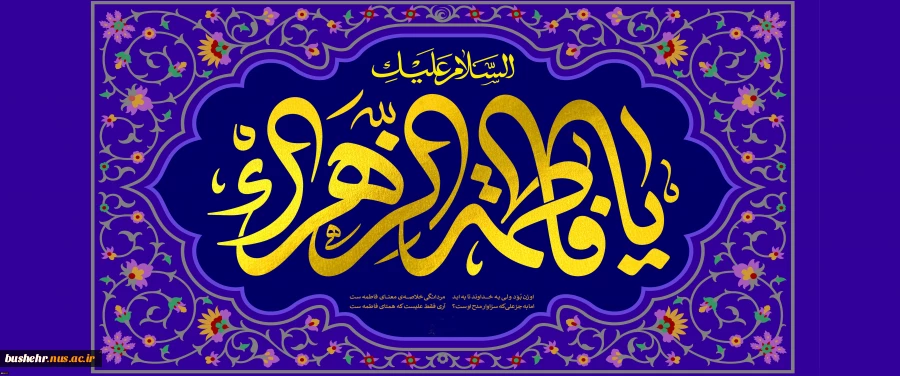 السَّلامُ عَلَيْكِ
یا فاطمة الزهراء
او زن بُوَد ولی به خداوند تا به ابد    مردانگی خلاصه‌ی معنای فاطمه ست
اما به جز علی که سزاوار مدح اوست؟    آری فقط علیست که همتای فاطمه ست
bushehr.nus.ac.ir